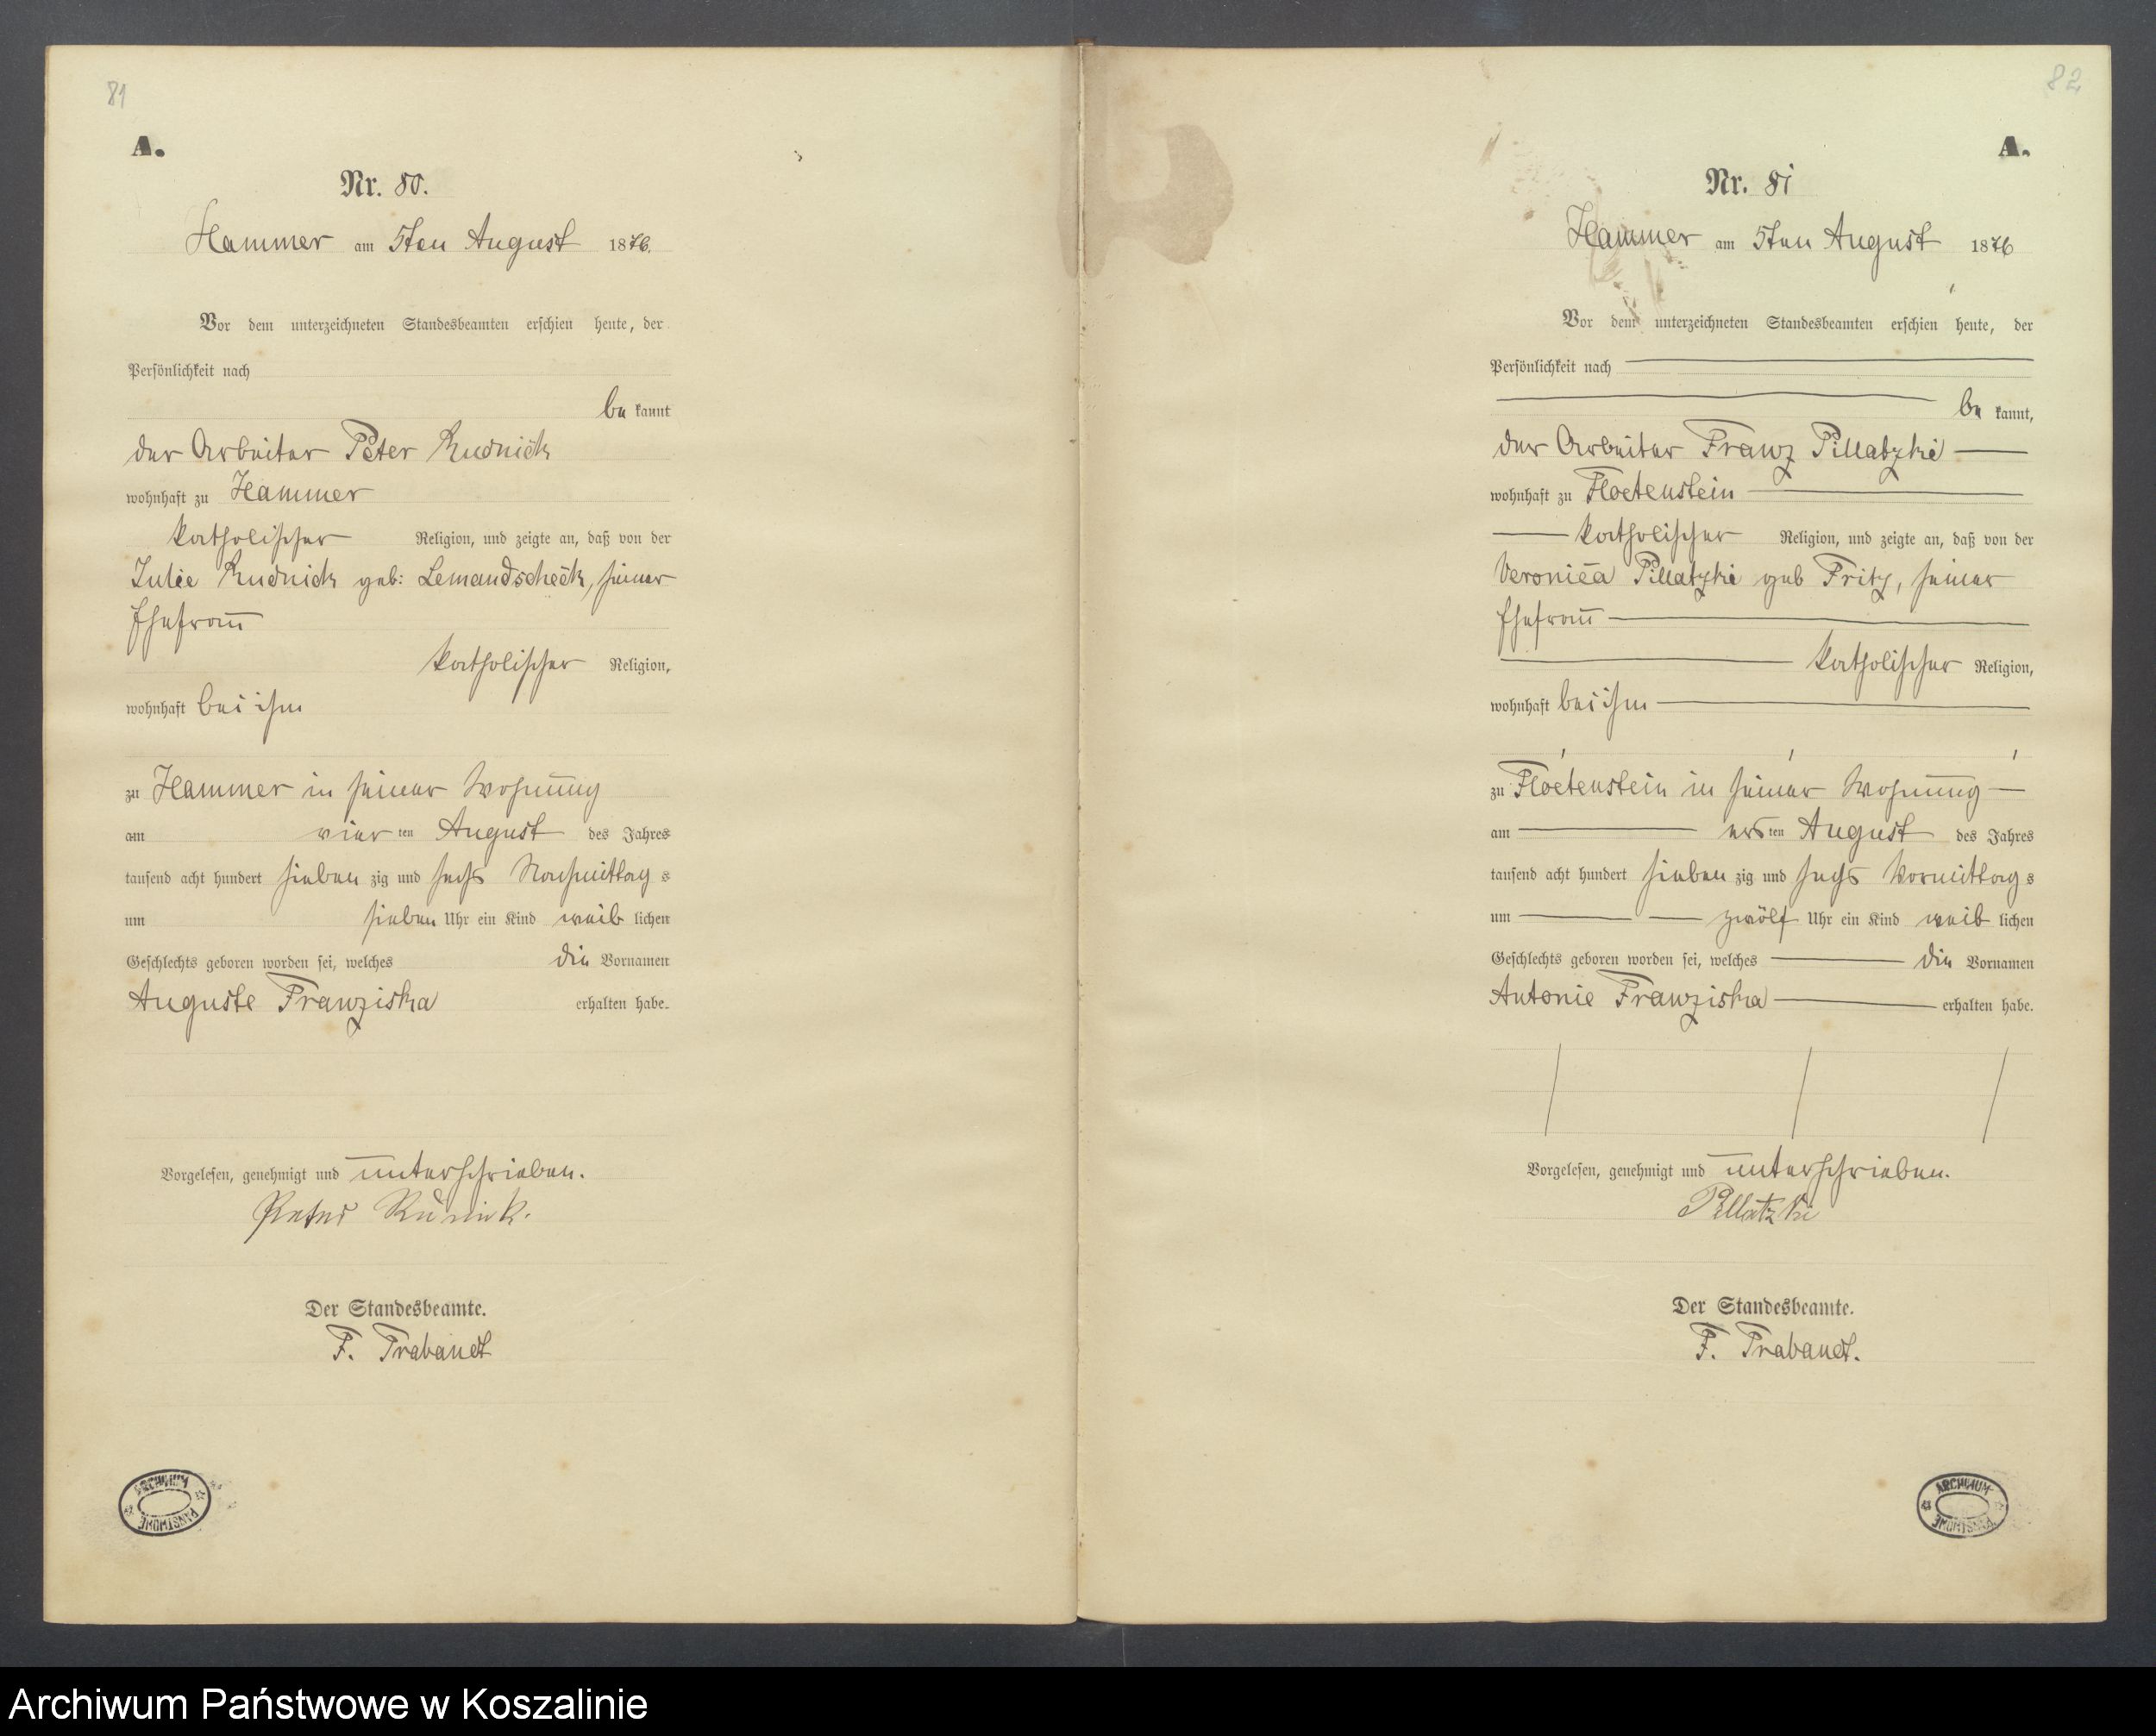 81
A.
Nr. 80.
Hammer am 5ten August 1876.
Vor dem unterzeichneten Standesbeamten erschien heute, der
Persönlichkeit nach
be kannt
der Arbeiter Peter Rudnick
wohnhaft zu Hammer
katholischer Religion, und zeigte an, daß von der
Julie Rudnick geb: Lemandscheck, seiner
Ehefrau
katholischer Religion,
wohnhaft bei ihm
zu Hammer in seiner Wohnung
am vier ten August des Jahres
tausend acht hundert sieben zig und sechs Nachmittag s
um sieben Uhr ein Kind weib lichen
Geschlechts geboren worden sei, welches die Vornamen
Auguste Franziska erhalten habe.
Vorgelesen, genehmigt und unterschrieben.
Peter Rudnick.
Der Standesbeamte.
F. Trabandt
ARCHIWUM PAŃSTWOWE
82
A.
Nr. 81
Hammer am 5ten August 1876
Vor dem unterzeichneten Standesbeamten erschien heute, der
Persönlichkeit nach
be kannt,
der Arbeiter Franz Pillatzki
wohnhaft zu Floetenstein
katholischer Religion, und zeigte an, daß von der
Veronica Pillatzki geb Fritz, seiner
Ehefrau
katholischer Religion,
wohnhaft bei ihm
zu Floetenstein in seiner Wohnung
am ers ten August des Jahres
tausend acht hundert sieben zig und sechs Vormittag s
um zwölf Uhr ein Kind weib lichen
Geschlechts geboren worden sei, welches die Vornamen
Antonie Franziska erhalten habe.
Vorgelesen, genehmigt und unterschrieben.
Pillatzki
Der Standesbeamte.
F. Trabandt.
ARCHIWUM PAŃSTWOWE
Archiwum Państwowe w Koszalinie